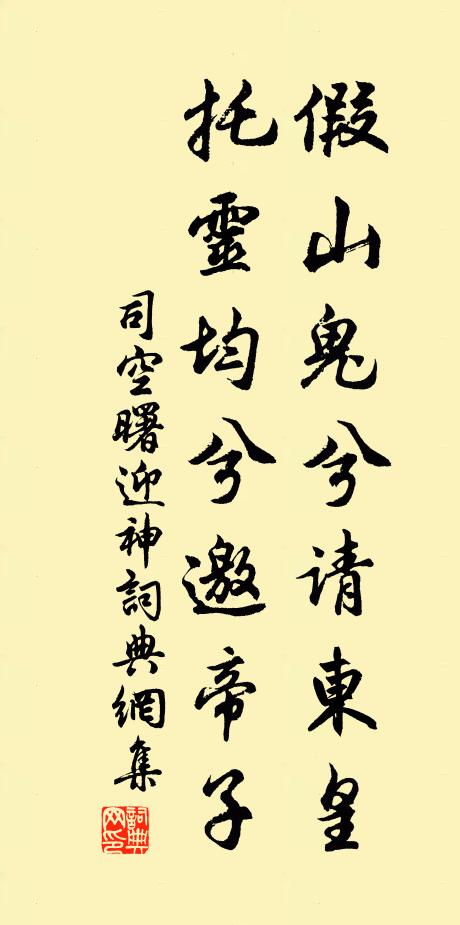 假山鬼兮请東皇
托靈均兮邀帝子
司空曙迎神詞典網集
詞典网印